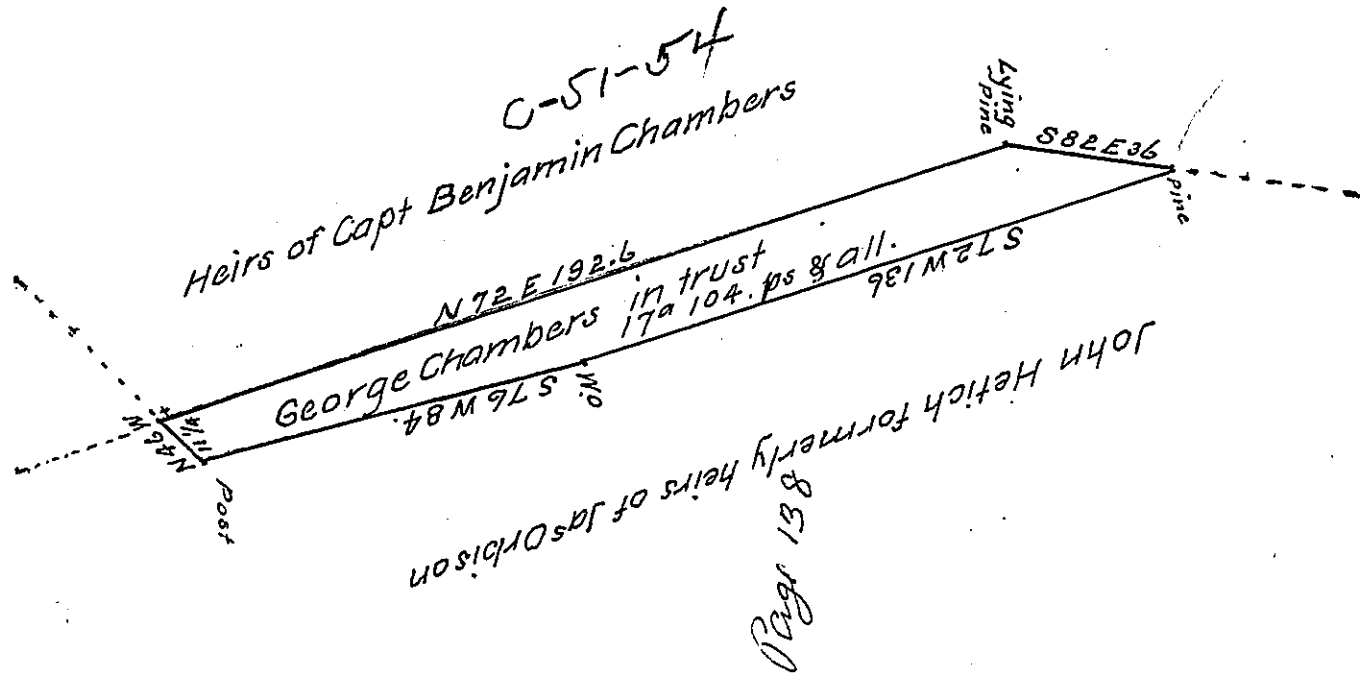 C-51-54
Heirs of Capt Benjamin Chambers
Lying
pine
S 82 E 36
pine
N 72 E 192.6
George Chambers in trust
17a 104. ps & all.
S 72 W 136
W.O
S 76 W 84.
N 46 W
11 1/4
Post
John Hetich formerly heirs of Jas Orbison
Page 138